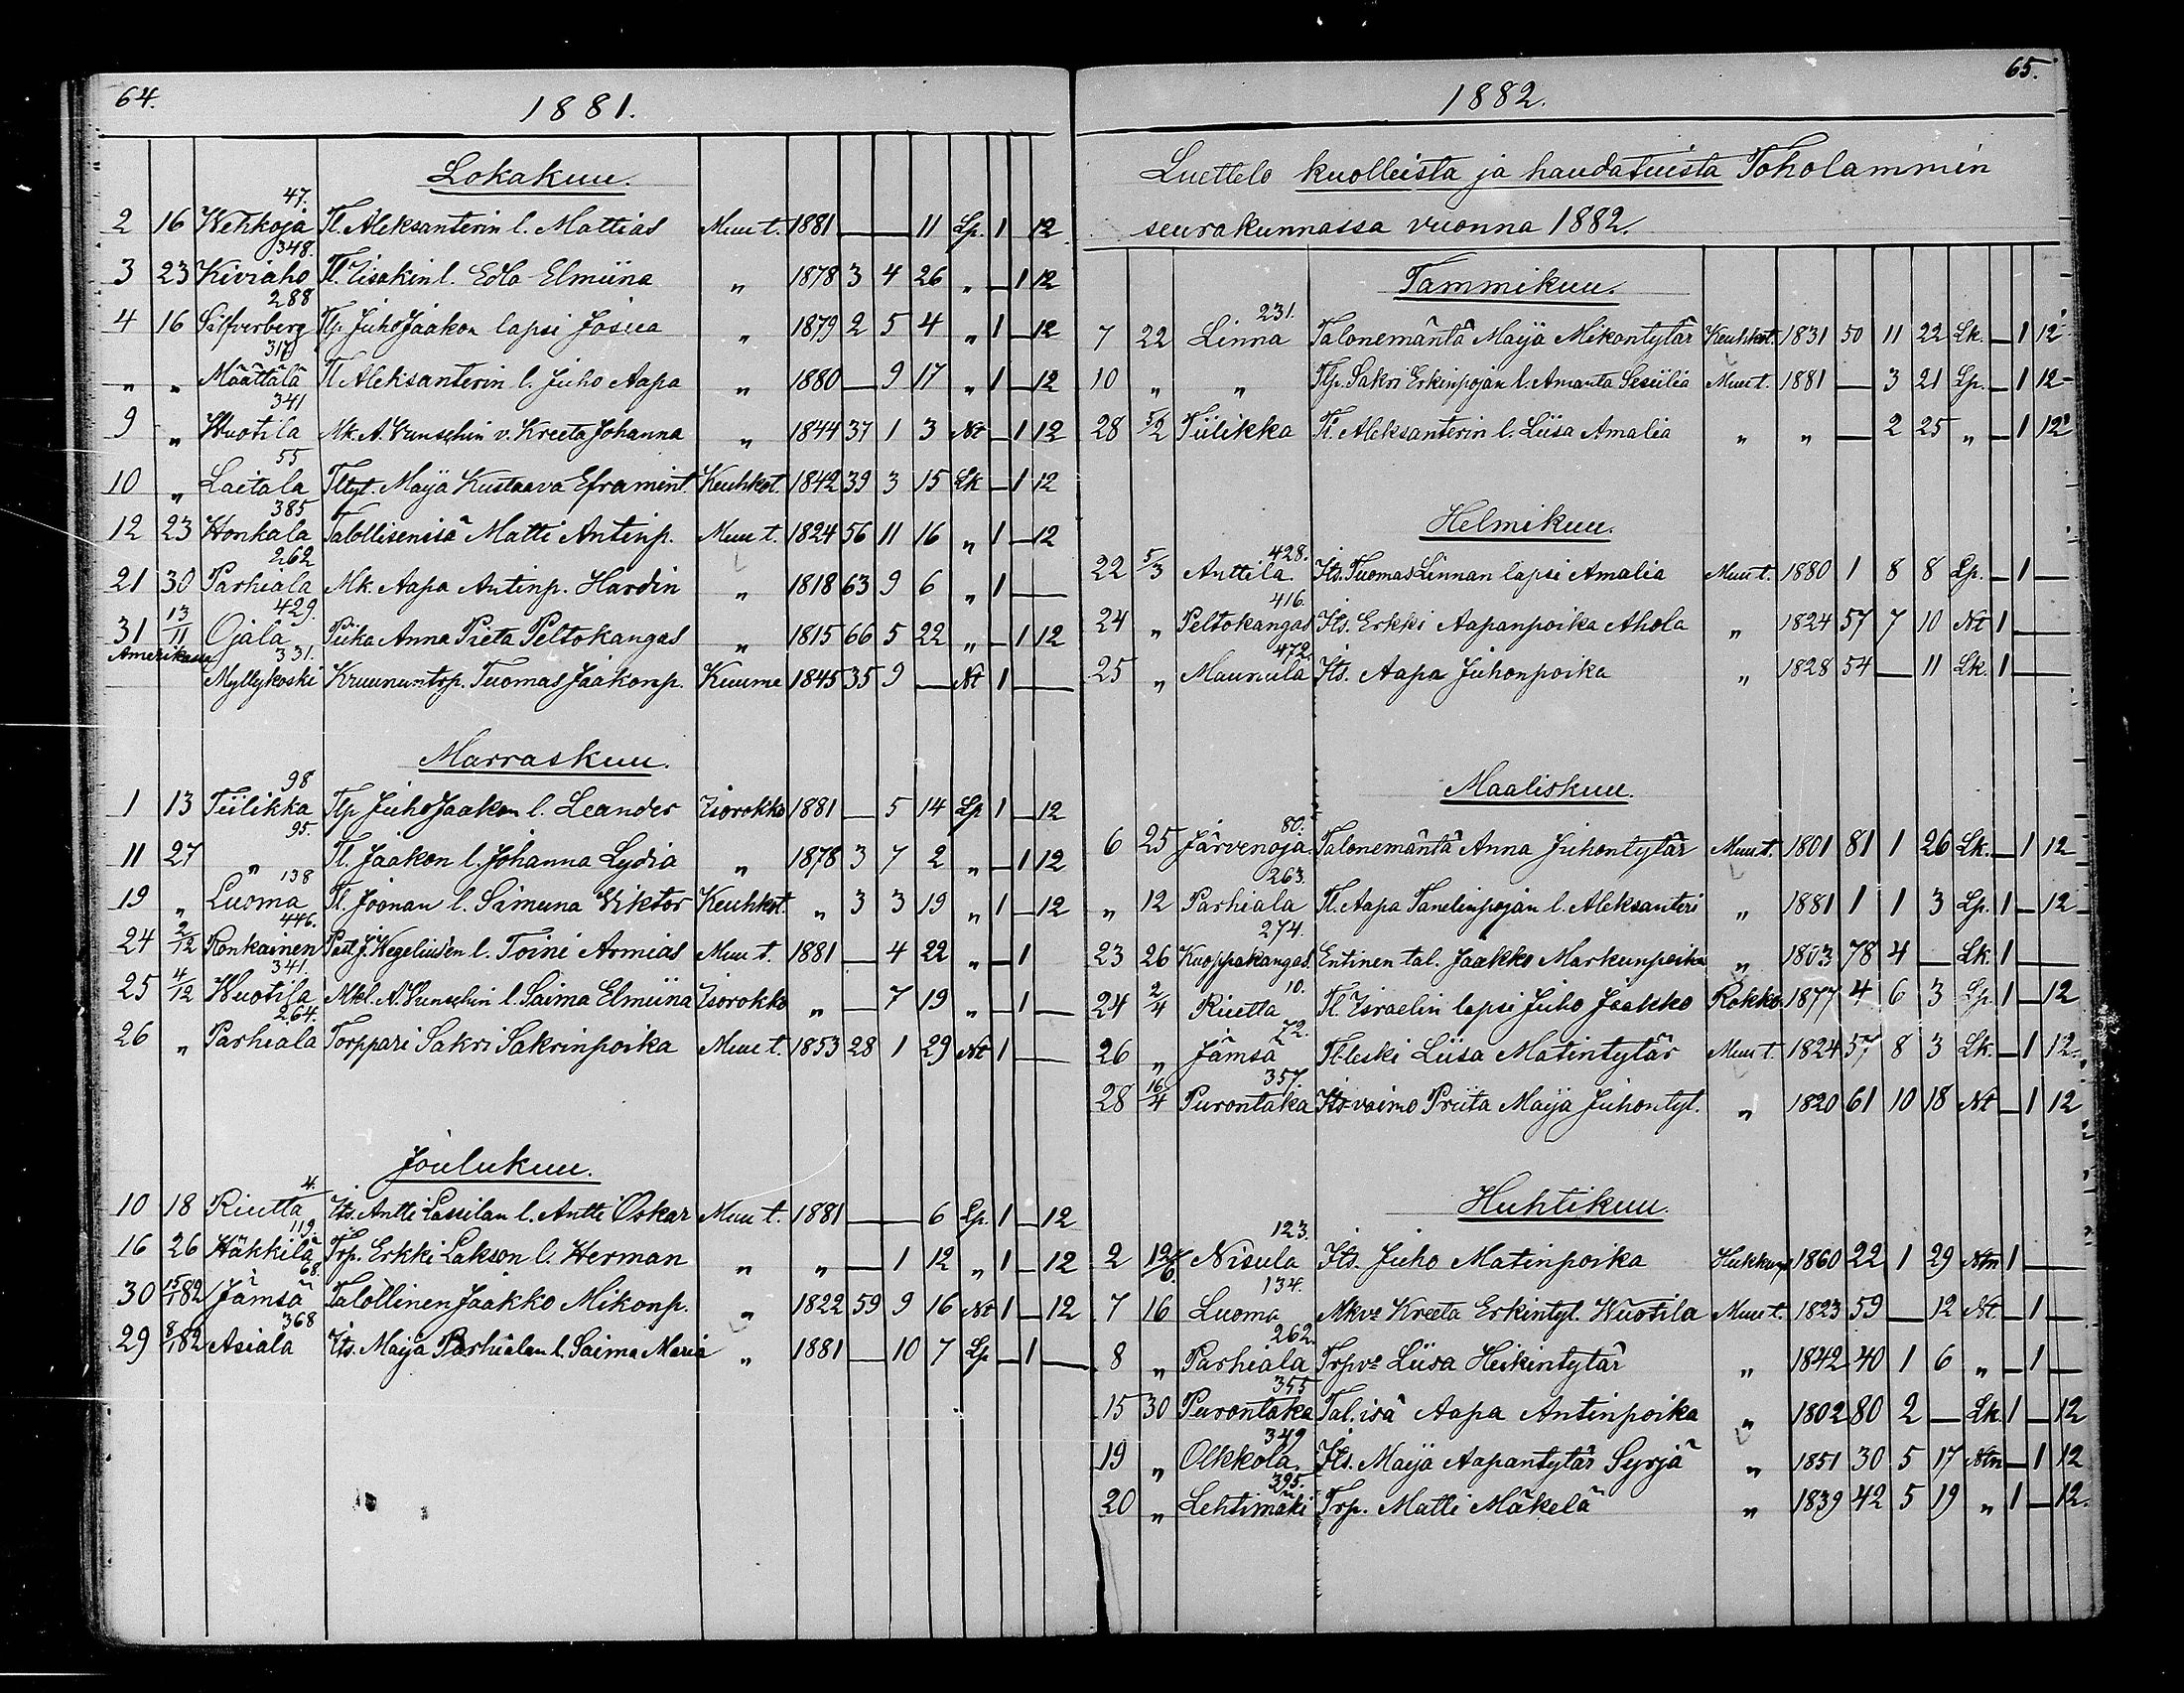 64.
1881.
Lokakuu.
47.
2 16 Wehkoja Tl. Aleksanterin l. Mattias Muu t. 1881 — — 11 Lp. 1 — 12
348.
3 23 Kiviaho Tl. Eisakin l. Edla Elmiina " 1878 3 4 26 " — 1 12
288
4 16 Silfverberg Tlp. Juho Jaakon lapsi Josua " 1879 2 5 4 " 1 — 12
317
" " Määttälä Tl Aleksanterin l. Juho Aapa " 1880 — 9 17 " 1 — 12
341
9 " Wuotila Mk. A. Vunschin v. Kreeta Johanna " 1844 37 1 3 Nt — 1 12
55
10 " Laitala Tltyt. Maija Kustaava Eframint. Keuhkot. 1842 39 3 15 Lk — 1 12
385
12 23 Honkala Talollisenisä Matti Antinp. Muu t. 1824 56 11 16 " 1 — 12
262
21 30 Parhiala Mk. Aapa Antinp. Hardin " 1818 63 9 6 " 1 —
429.
31 13/11 Ojala Piika Anna Pieta Peltokangas " 1815 66 5 22 " — 1 12
Amerikassa 331.
Myllykoski Kruununtrp. Tuomas Jaakonp. Kuume 1845 35 9 — Nt 1 —
Marraskuu.
98
1 13 Tiilikka Tlp Juho Jaakon l. Leander Isorokko 1881 — 5 14 Lp 1 — 12
95.
11 27 " Tl. Jaakon l. Johanna Lydia " 1878 3 7 2 " — 1 12
138
19 " Luoma Tl. Joonan l. Simuna Viktor Keuhkot. " 3 3 19 " 1 — 12
446.
24 2/12 Ronkainen Past J. Wegeliusen l. Toini Armias Muu t. 1881 — 4 22 " — 1
341.
25 4/12 Wuotila Mkl. A. Vunschin l. Saima Elmiina Isorokko " — 7 19 " — 1 —
264.
26 " Parhiala Torppari Sakri Sakrinpoika Muu t. 1853 28 1 29 Nt 1 —
Joulukuu.
4.
10 18 Riutta Its. Antti Lassilan l. Antti Oskar Muu t. 1881 — — 6 Lp. 1 — 12
119.
16 26 Häkkilä Trp. Erkki Lakson l. Herman " " — 1 12 " 1 — 12
68.
30 15/1 82 Jämsä Talollinen Jaakko Mikonp. " 1822 59 9 16 Nt 1 — 12
368
29 8/1 82 Asiala Its. Maija Parhialan l. Saima Maria " 1881 — 10 7 Lp — 1 —
65.
1882.
Luettelo kuolleista ja haudatuista Toholammin
seurakunnassa vuonna 1882.
Tammikuu.
231.
7 22 Linna Talonemäntä Maija Mikontytär Keuhkot. 1831 50 11 22 Lk. — 1 12
10 " " Tlp. Sakri Erkinpojan l. Amanta Sesiilia Muu t. 1881 — 3 21 Lp. — 1 12
28 5/2 Tiilikka Tl. Aleksanterin l. Liisa Amalia " " — 2 25 " — 1 12
Helmikuu.
428.
22 5/3 Anttila Its. Tuomas Linnan lapsi Amalia Muu t. 1880 1 8 8 Lp. — 1 —
416.
24 " Peltokangas Its. Erkki Aapanpoika Ahola " 1824 57 7 10 Nt 1 —
472.
25 " Maunula Its. Aapa Juhonpoika " 1828 54 — 11 Lk. 1 —
Maaliskuu.
80.
6 25 Järvenoja Talonemäntä Anna Juhontytär Muu t. 1801 81 1 26 Lk. — 1 12
263.
" 12 Parhiala Tl. Aapa Tanelinpojan l. Aleksanteri " 1881 1 1 3 Lp. 1 — 12
274.
23 26 Kuoppakangas. Entinen tal. Jaakko Markunpoika " 1803 78 4 — Lk. 1 —
10.
24 2/4 Riutta Tl. Israelin lapsi Juho Jaakko Rokko. 1877 4 6 3 Lp. 1 — 12
72.
26 " Jämsä Tl. leski Liisa Matintytär Muu t. 1824 57 8 3 Lk. — 1 12
357.
28 16/4 Purontaka Its vaimo Priita Maija Juhontyt. " 1820 61 10 18 Nt — 1 12
Huhtikuu.
123.
2 12/6. Nisula Its. Juho Matinpoika Hukkunut 1860 22 1 29 Ntn 1 —
134.
7 16 Luoma Mkvº Kreeta Erkintyt. Wuotila Muu t. 1823 59 — 12 Nt. — 1 —
262.
8 " Parhiala Trpvº Liisa Heikintytär " 1842 40 1 6 " — 1 —
355
15 30 Purontaka Tal. isä Aapa Antinpoika " 1802 80 2 — Lk 1 — 12
349
19 " Olkkola Its. Maija Aapantytär Syrjä " 1851 30 5 17 Ntn — 1 12
395.
20 " Lehtimäki Trp. Matti Mäkelä " 1839 42 5 19 " 1 — 12.